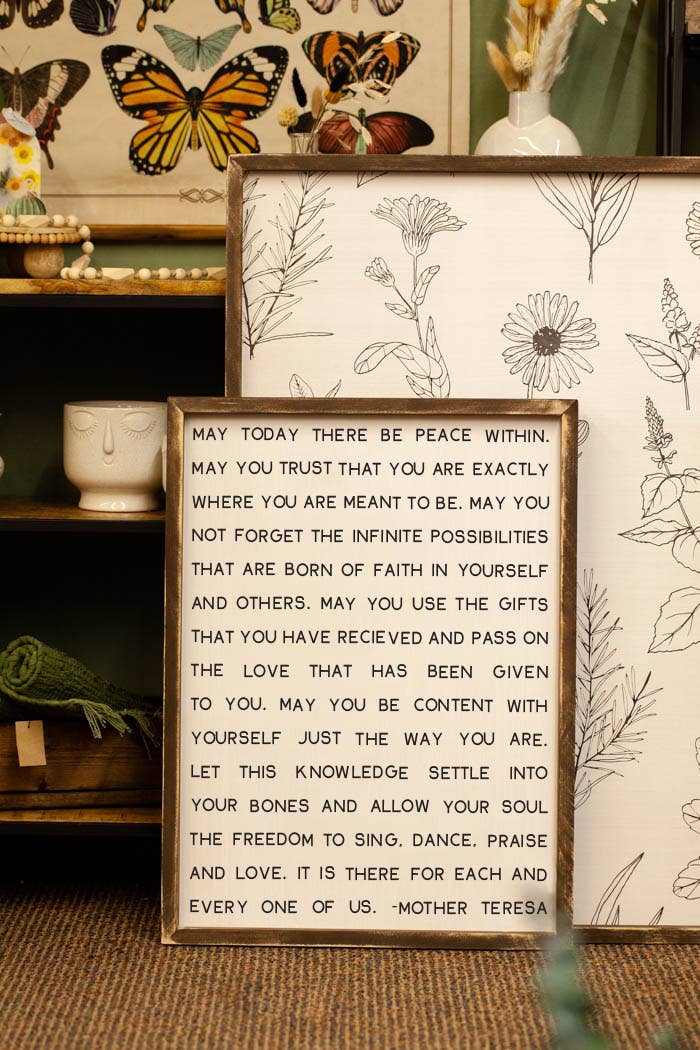 MAY TODAY THERE BE PEACE WITHIN.
MAY YOU TRUST THAT YOU ARE EXACTLY
WHERE YOU ARE MEANT TO BE. MAY YOU
NOT FORGET THE INFINITE POSSIBILITIES
THAT ARE BORN OF FAITH IN YOURSELF
AND OTHERS. MAY YOU USE THE GIFTS
THAT YOU HAVE RECIEVED AND PASS ON
THE LOVE THAT HAS BEEN GIVEN
TO YOU. MAY YOU BE CONTENT WITH
YOURSELF JUST THE WAY YOU ARE.
LET THIS KNOWLEDGE SETTLE INTO
YOUR BONES AND ALLOW YOUR SOUL
THE FREEDOM TO SING, DANCE, PRAISE
AND LOVE. IT IS THERE FOR EACH AND
EVERY ONE OF US. -MOTHER TERESA